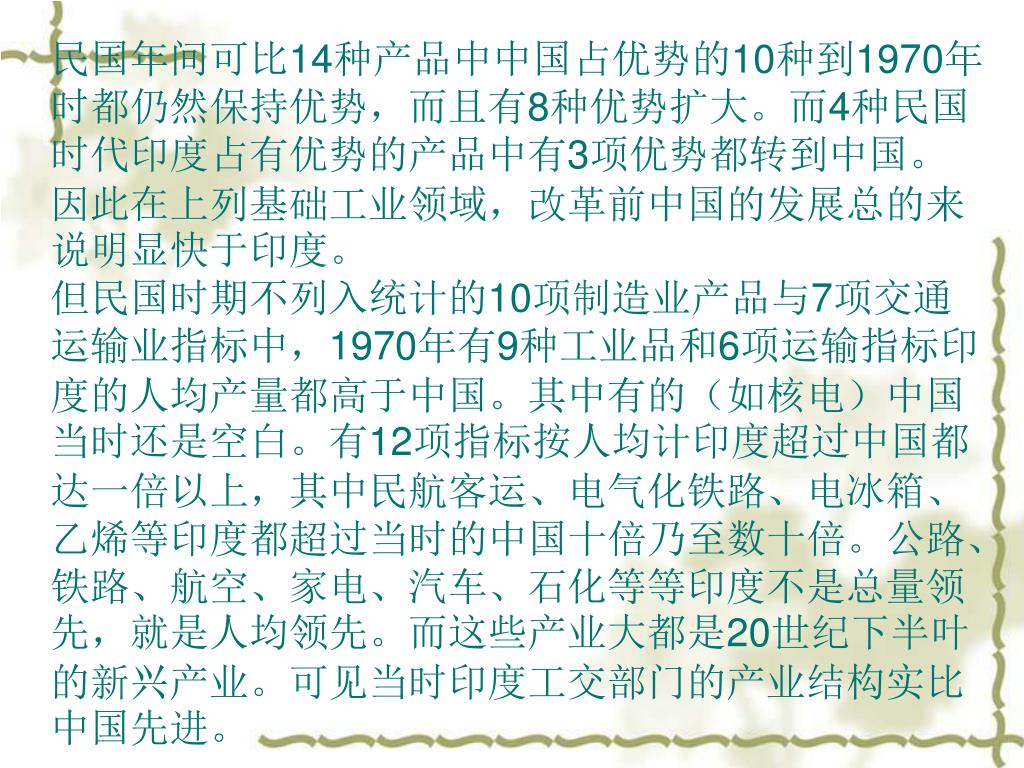 民国年间可比14种产品中中国占优势的10种到1970年
时都仍然保持优势，而且有8种优势扩大。而4种民国
时代印度占有优势的产品中有3项优势都转到中国。
因此在上列基础工业领域，改革前中国的发展总的来
说明显快于印度。
但民国时期不列入统计的10项制造业产品与7项交通
运输业指标中，1970年有9种工业品和6项运输指标印
度的人均产量都高于中国。其中有的（如核电）中国
当时还是空白。有12项指标按人均计印度超过中国都
达一倍以上，其中民航客运、电气化铁路、电冰箱、
乙烯等印度都超过当时的中国十倍乃至数十倍。公路、
铁路、航空、家电、汽车、石化等等印度不是总量领
先，就是人均领先。而这些产业大都是20世纪下半叶
的新兴产业。可见当时印度工交部门的产业结构实比
中国先进。